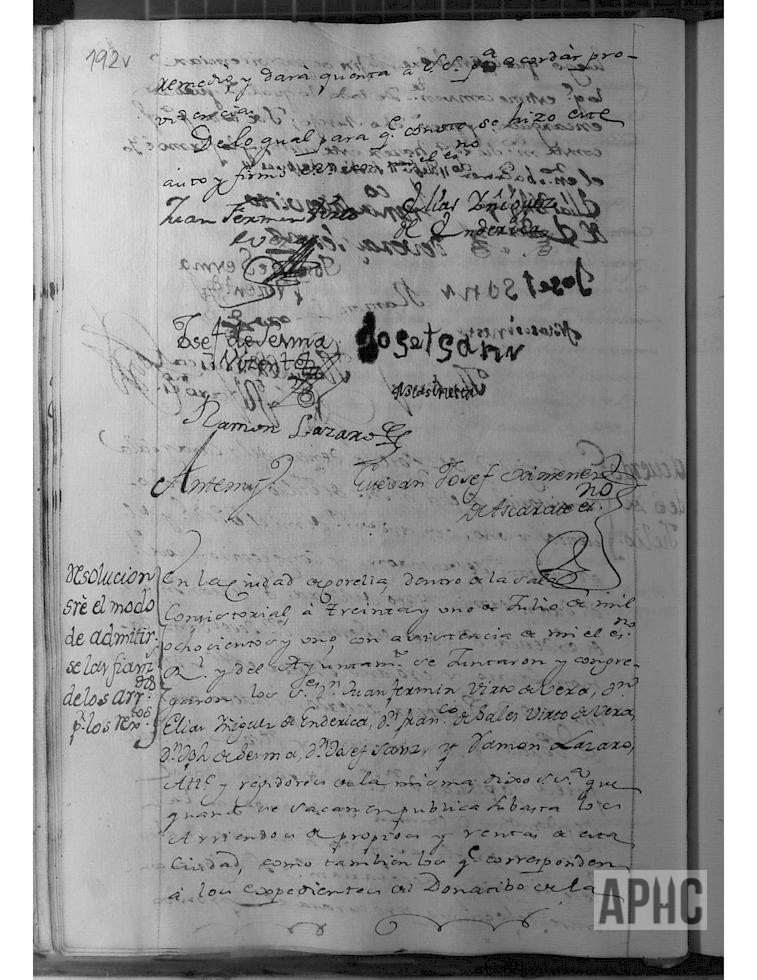 192v
remedio, y dará quenta à S.S. pª acordár pro-
videncia.
De lo qual para q.e conste se hizo este
auto y firmó el es.no
Juan Fermin Virto
de Vera
Elias Yñiguez
de Enderica
Josef de Serma
Vizente
Josef Sanz
Ramon Lazaro
Antemy
Estevan Josef Ximenez
de Ascarate es.no
Resolucion
sre el modo
de admitir-
se las fianz.
de los arr.dos
p.r los rex.tos
En la Ciudad de Corella, dentro de la Sala
Consistorial, à treinta y uno de Julio de mil
ochocientos y uno, con asistencia de mi el es.no
R.l y del Ayuntam.to se Juntaron y congre-
garon los S.res D.n Juan fermin Virto de Vera, D.n
Elias Yñiguez de Enderica, D.n fran.co de Sales Virto de Vera,
D.n Jph. de Serma, D.n Josef Sanz, y Ramon Lazaro,
Alc.e y regidores de la misma dixo S.S.ª que
quando se sacan en publica subasta los
Arriendos de propios y rentas de esta
Ciudad, como tambien los q.e corresponden
à los expedientes del Donatibo de la
APHC